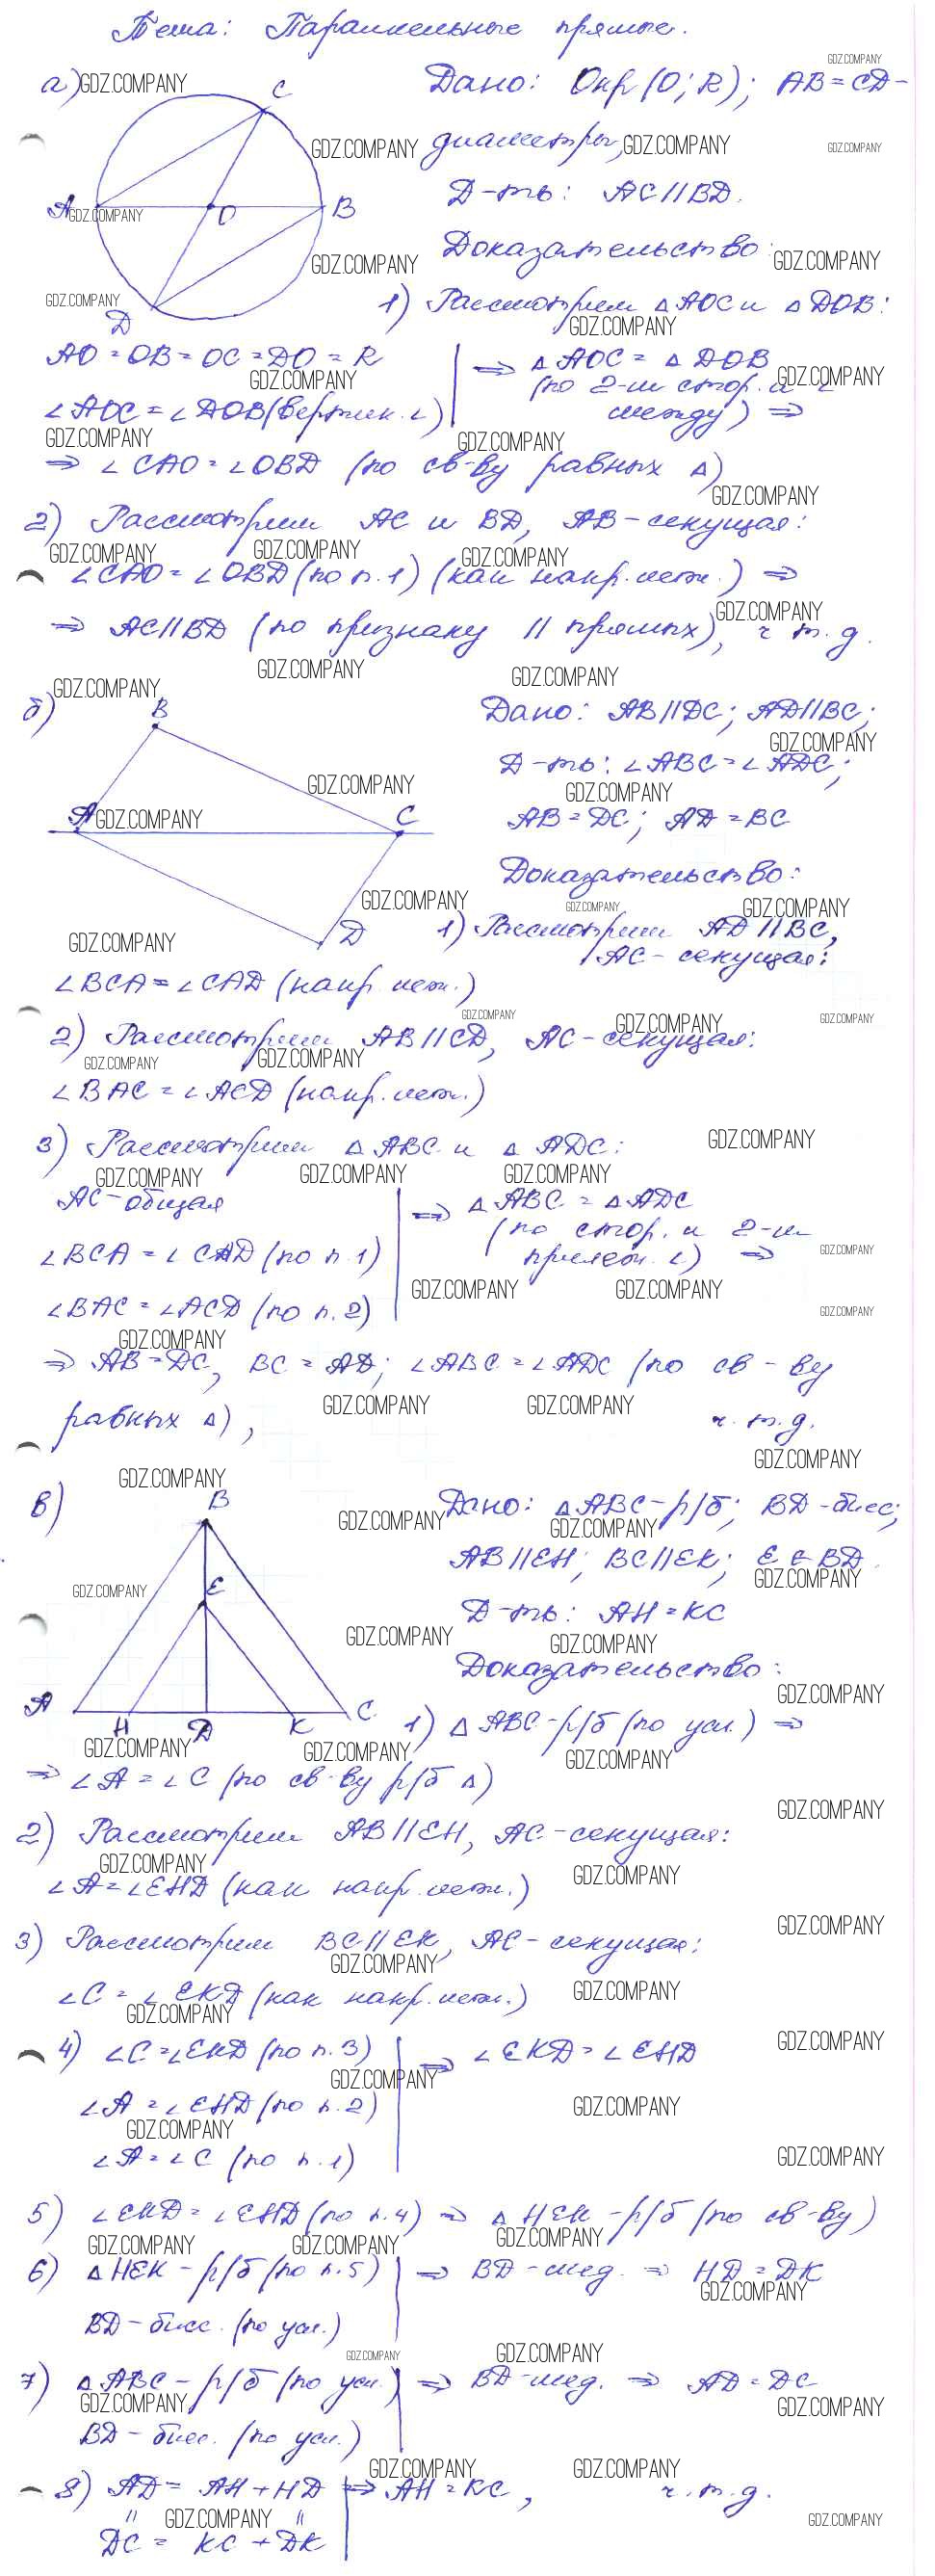 Тема: Параллельные прямые.
а) Дано: Окр(O; R); AB = CD –
диаметры,
Д-ть: AC || BD.
Доказательство:
1) Рассмотрим △AOC и △DOB:
AO = OB = OC = DO = R
∠AOC = ∠DOB (вертик. ∠)
⇒ △AOC = △DOB
(по 2-м стор. и ∠
между) ⇒
⇒ ∠CAO = ∠OBD (по св-ву равных △)
2) Рассмотрим AC и BD, AB – секущая:
∠CAO = ∠OBD (по п.1) (как накр. леж.) ⇒
⇒ AC || BD (по признаку || прямых), ч т. д.
б) Дано: AB || DC; AD || BC;
Д-ть: ∠ABC = ∠ADC;
AB = DC; AD = BC
Доказательство:
1) Рассмотрим AD || BC,
AC – секущая:
∠BCA = ∠CAD (накр. леж.)
2) Рассмотрим AB || CD, AC – секущая:
∠BAC = ∠ACD (накр. леж.)
3) Рассмотрим △ABC и △ADC:
AC – общая
∠BCA = ∠CAD (по п.1)
∠BAC = ∠ACD (по п.2)
⇒ △ABC = △ADC
(по стор. и 2-м
прилеж. ∠) ⇒
⇒ AB = DC, BC = AD; ∠ABC = ∠ADC (по св-ву
равных △), ч. т. д.
в) Дано: △ABC – р/б; BD – бисс;
AB || EH; BC || EK; E ∈ BD.
Д-ть: AH = KC
Доказательство:
1) △ABC – р/б (по усл.) ⇒
⇒ ∠A = ∠C (по св-ву р/б △)
2) Рассмотрим AB || EH, AC – секущая:
∠A = ∠EHD (как накр. леж.)
3) Рассмотрим BC || EK, AC – секущая:
∠C = ∠EKD (как накр. леж.)
4) ∠C = ∠EKD (по п.3)
∠A = ∠EHD (по п.2)
∠A = ∠C (по п.1)
⇒ ∠EKD = ∠EHD
5) ∠EKD = ∠EHD (по п.4) ⇒ △HEK – р/б (по св-ву)
6) △HEK – р/б (по п.5)
BD – бисс. (по усл.)
⇒ BD – мед. ⇒ HD = DK
7) △ABC – р/б (по усл.)
BD – бисс. (по усл.)
⇒ BD – мед. ⇒ AD = DC
8) AD = AH + HD
" "
DC = KC + DK
⇒ AH = KC, ч. т. д.
A
B
C
D
O
A
B
C
D
B
E
A
H
D
K
C
GDZ.COMPANY